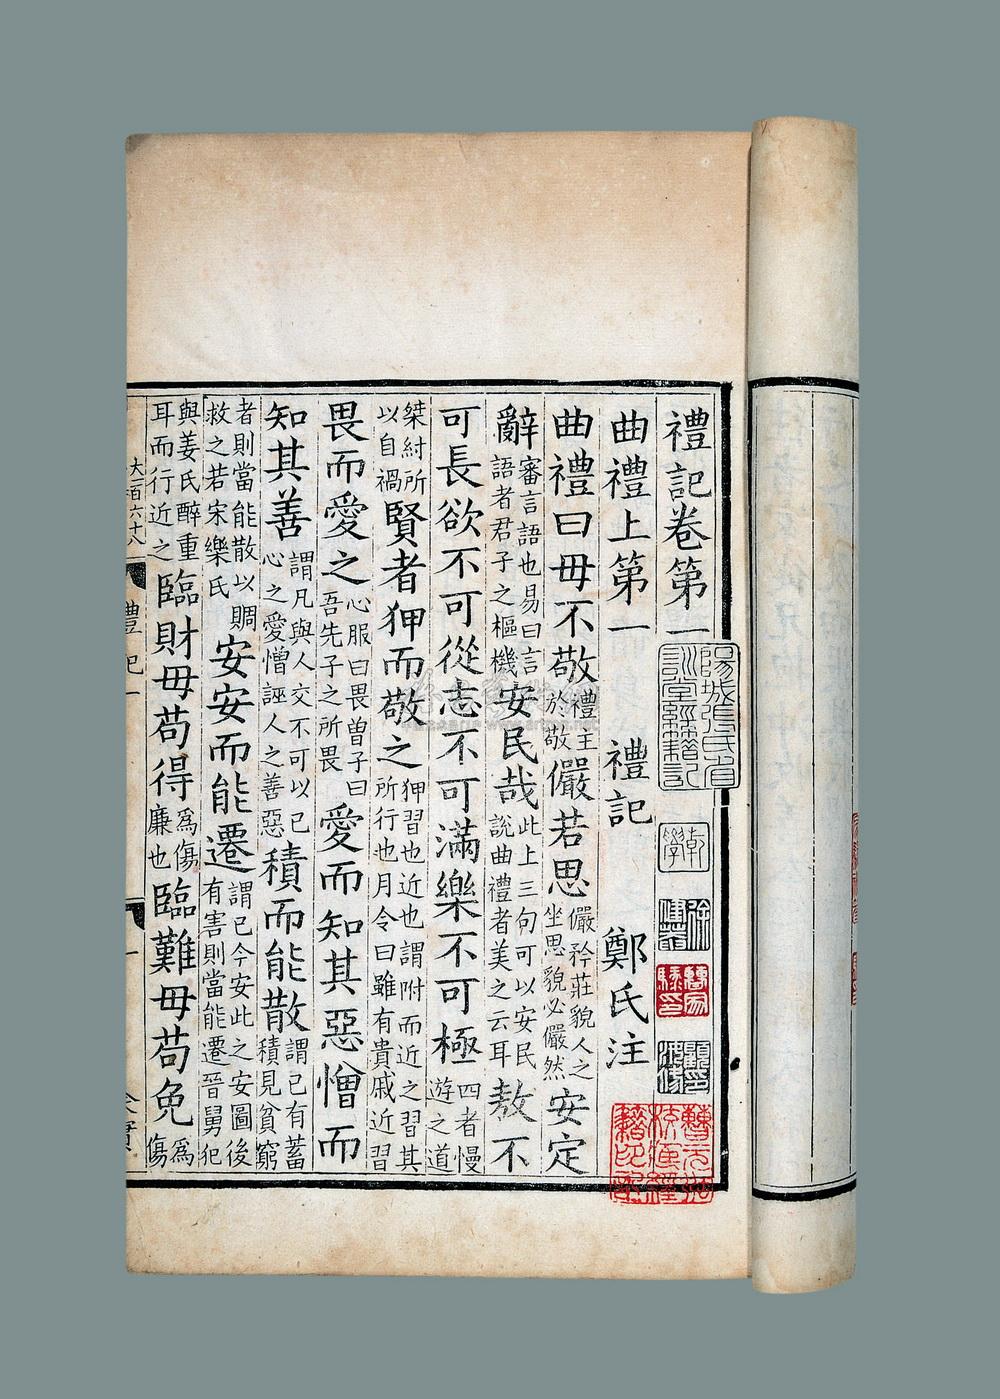 禮記卷第一
曲禮上第一 禮記 鄭氏注
曲禮曰毋不敬禮主於敬儼若思儼矜莊貌人之坐思貌必儼然安定
辭審言語也易曰言語者君子之樞機安民哉此上三句可以安民說曲禮者美之云耳敖不
可長欲不可從志不可滿樂不可極四者慢遊之道
桀紂所以自禍賢者狎而敬之狎習也近也謂附而近之習其所行也月令曰雖有貴戚近習
畏而愛之心服曰畏曾子曰吾先子之所畏愛而知其惡憎而
知其善謂凡與人交不可以己心之愛憎誣人之善惡積而能散謂己有蓄積見貧窮
者則當能散以賙救之若宋樂氏安安而能遷謂己今安此之安圖後有害則當能遷晉舅犯
與姜氏醉重耳而行近之臨財毋苟得為傷廉也臨難毋苟免為傷
大一百六十八
禮記一
一